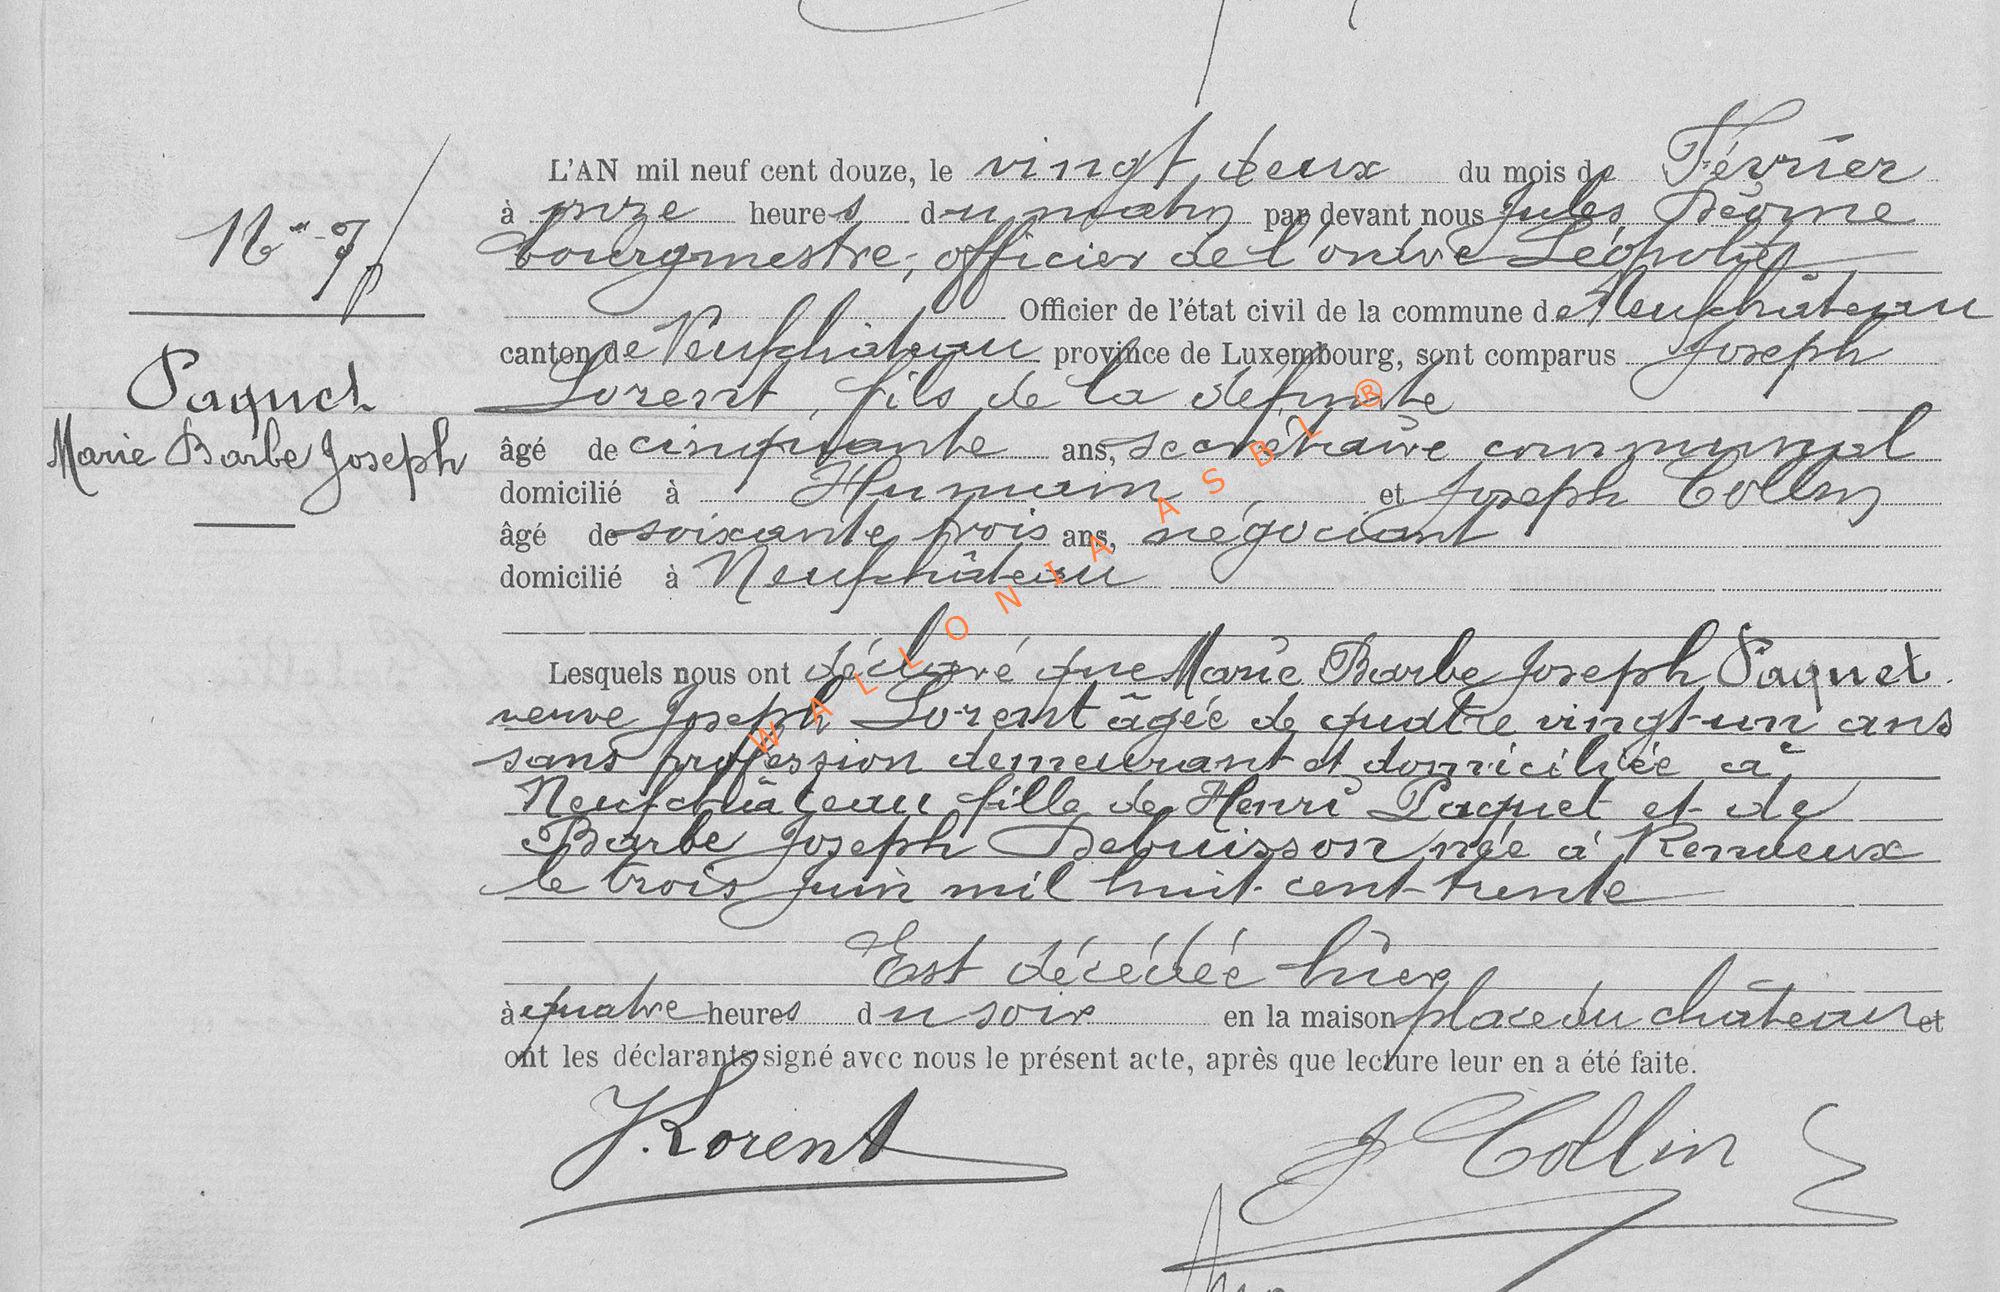 L'AN mil neuf cent douze, le vingt deux du mois de Février
à onze heures du matin par devant nous Jules
bourgmestre, officier de l'ordre Léopold
Officier de l'état civil de la commune de Neufchâteau
canton de Neufchâteau province de Luxembourg, sont comparus Joseph
Lorent, fils de la défunte
âgé de cinquante ans, secrétaire communal
domicilié à Humain et Joseph Collin
âgé de soixante trois ans, négociant
domicilié à Neufchâteau
Lesquels nous ont déclaré que Marie Barbe Joseph Paquet
veuve Joseph Lorent âgée de quatre vingt-un ans
sans profession demeurant et domiciliée à
Neufchâteau fille de Henri Paquet et de
Barbe Joseph Debuisson née à Rendeux
le trois juin mil huit-cent-trente
Est décédée hier
à quatre heures du soir en la maison place du château et
ont les déclarants signé avec nous le présent acte, après que lecture leur en a été faite.
N° 7
Paquet
Marie Barbe Joseph
J. Lorent
J Collin
WALLONIA ASBL ®